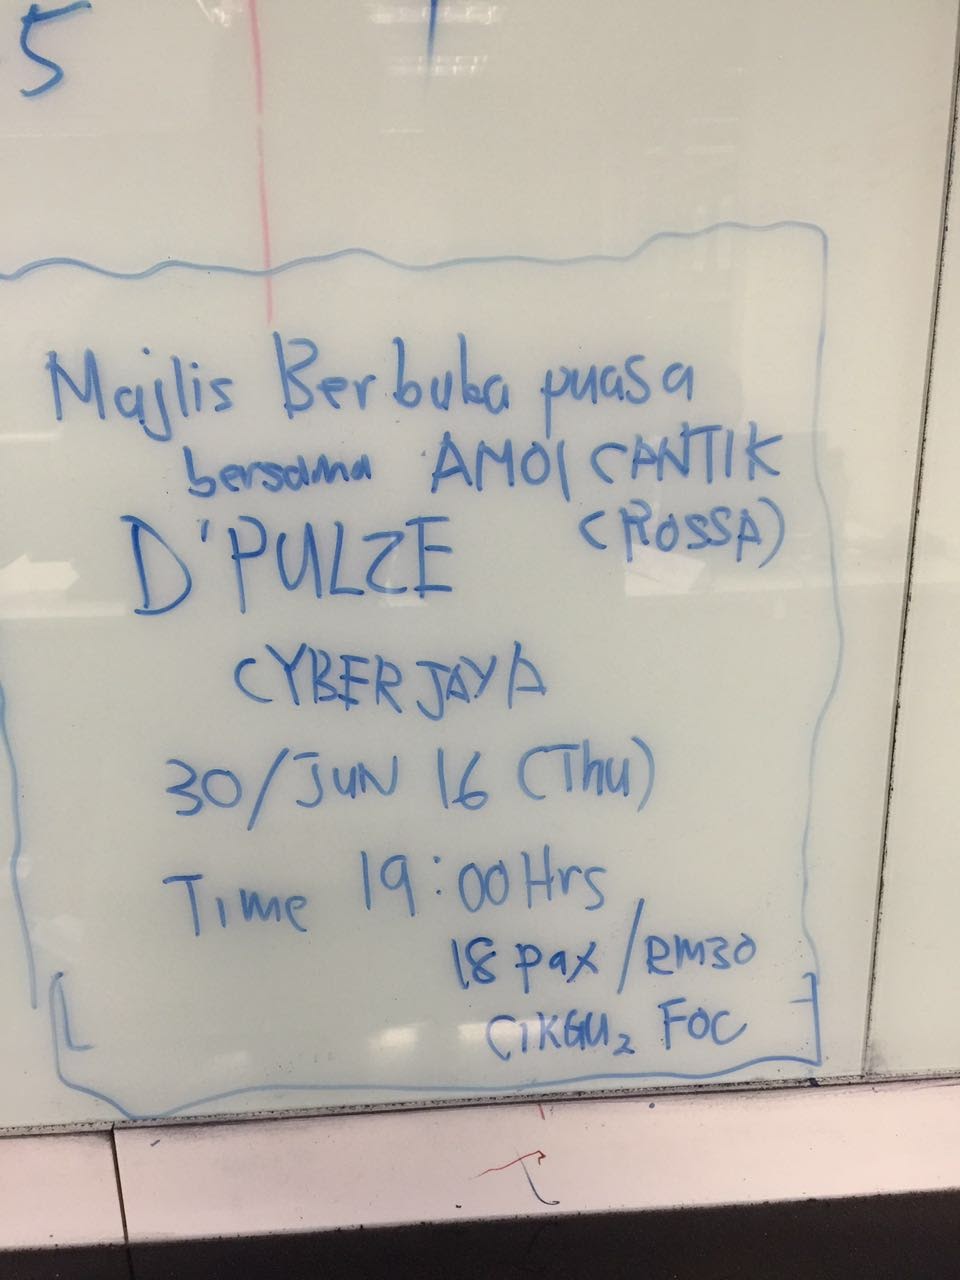 5
Majlis Berbuka puasa
bersama AMOI CANTIK
(ROSSA)
D'PULZE
CYBERJAYA
30/JUN 16 (Thu)
Time 19:00Hrs
18 pax/RM30
CIKGU2 FOC